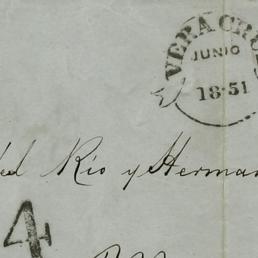 VERA CRUZ
JUNIO
1851
del Río y Herman
4